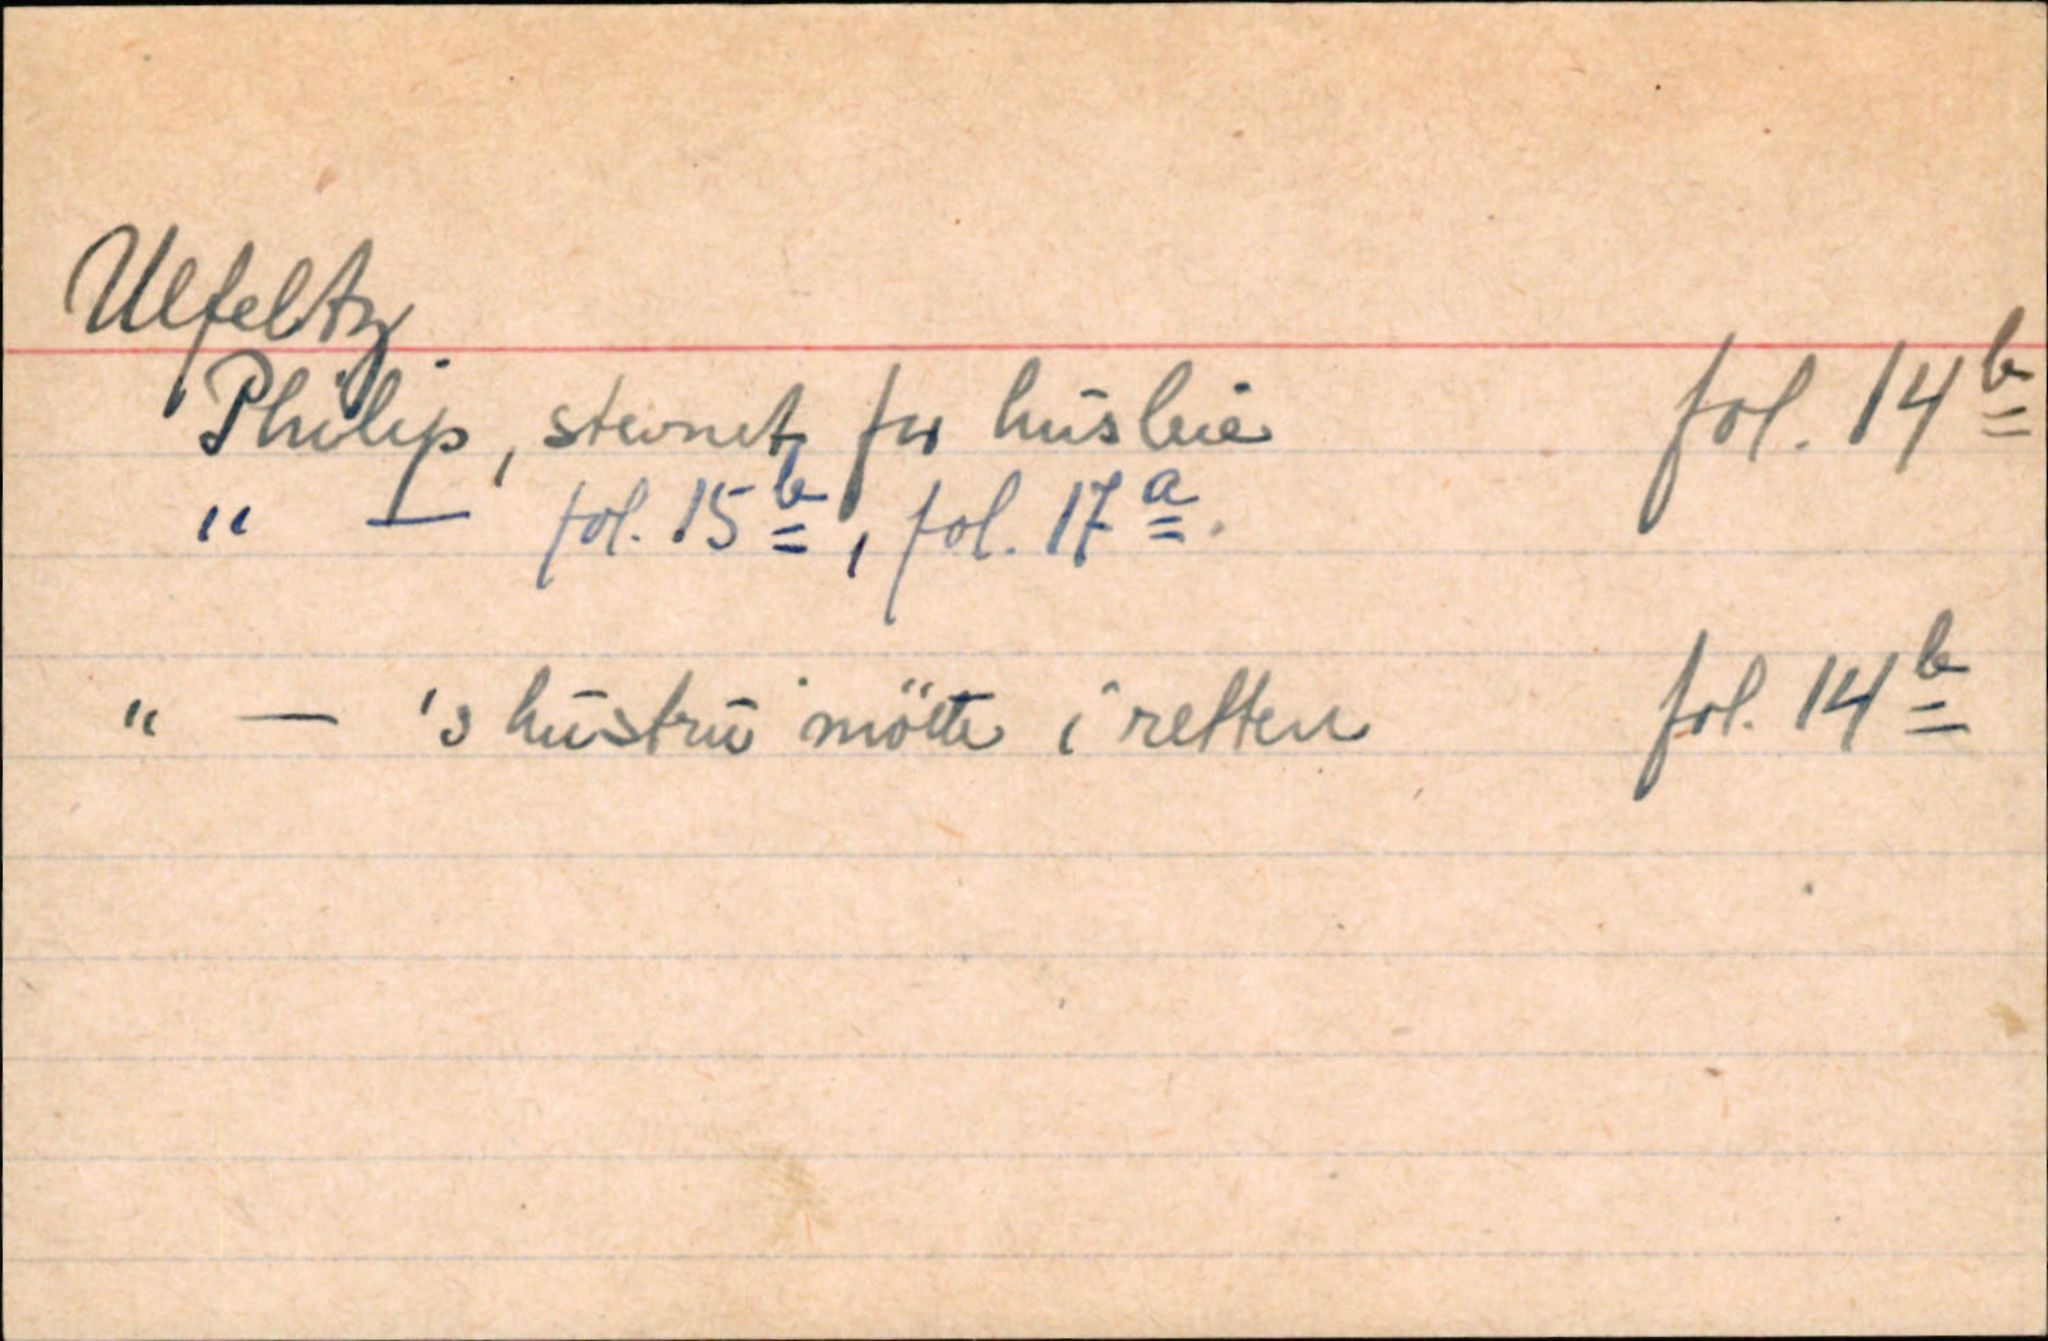 Ulfeltz
Philip, stevnet for husleie fol. 14b
" — fol. 15b, fol. 17a.
" — 's hustru mötte i retten fol. 14b